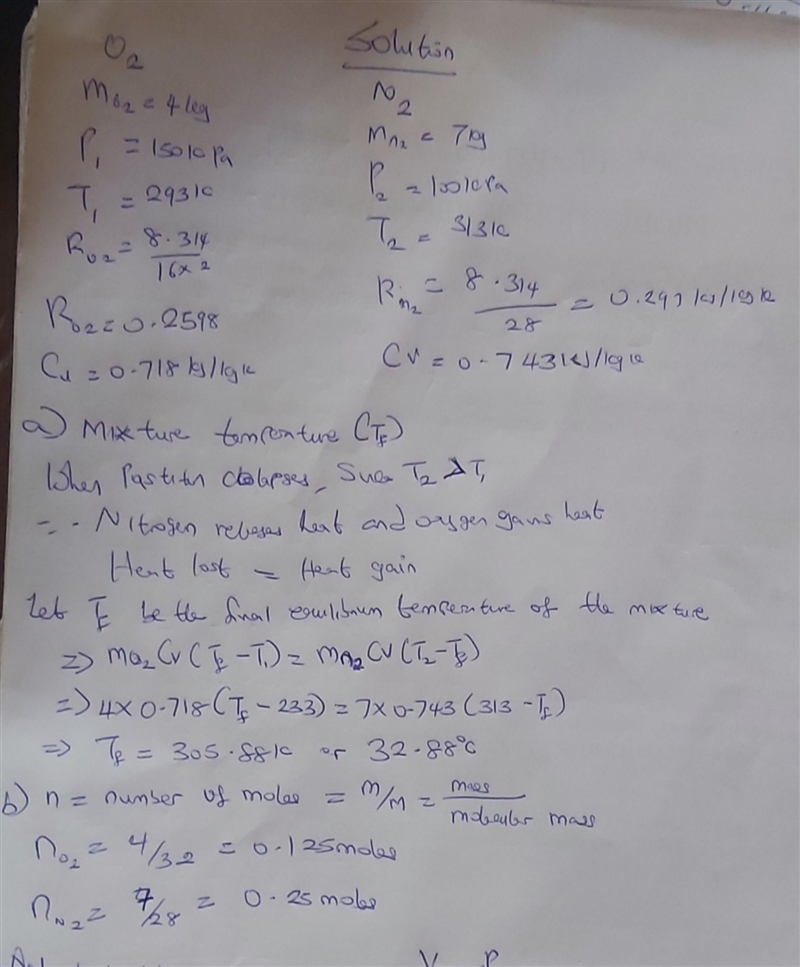 Solution
O2
mO2 = 4kg
P1 = 150kPa
T1 = 293k
RO2 = 8.314 / 16x2
RO2 = 0.2598
Cv = 0.718 kJ/kgk
N2
mn2 = 7kg
P2 = 100kPa
T2 = 313k
Rn2 = 8.314 / 28 = 0.297 kJ/kgk
Cv = 0.743kJ/kgk
a) Mixture temperature (Tf)
When Partition collapses, Since T2 > T1
∴ Nitrogen releases heat and oxygen gains heat
Heat lost = Heat gain
Let Tf be the final equilibrium temperature of the mixture
=> mo2 Cv (Tf - T1) = mn2 Cv (T2 - Tf)
=> 4 x 0.718 (Tf - 233) = 7 x 0.743 (313 - Tf)
=> Tf = 305.88k or 32.88°C
b) n = number of moles = m/M = mass / molecular mass
nO2 = 4/32 = 0.125moles
nN2 = 7/28 = 0.25moles